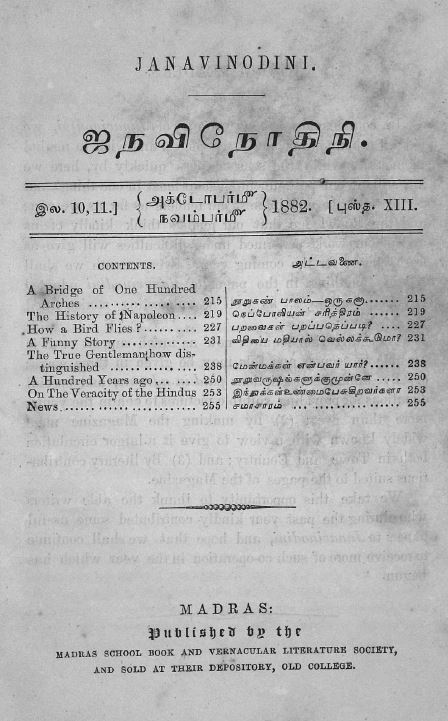 JANAVINODINI.
ஜநவிநோதிநி.
இல. 10, 11.] { அக்டோபர்மீ 
நவம்பர்மீ } 1882. [புஸ்த. XIII.
CONTENTS.
A Bridge of One Hundred
Arches .................. 215
The History of Napoleon .... 219
How a Bird Flies? ......... 227
A Funny Story ............. 231
The True Gentleman how dis-
tinguished ................ 238
A Hundred Years ago ...... 250
On The Veracity of the Hindus 253
News ...................... 255
அட்டவணை.
நூறுகண் பாலம்—ஒருகதை ...... 215
நெப்போலியன் சரித்திரம் ...... 219
பறவைகள் பறப்பதெப்படி? .... 227
விதியை மதியால் வெல்லக்கூடுமோ? 231
மேன்மக்கள் என்பவர் யார்? ...... 238
நூறுவருஷங்களுக்குமுன்னே ..... 250
இந்துக்கள்உண்மைபேசுகிறவர்களா 253
சமாசாரம் ... ................ 255
MADRAS:
Published by the
MADRAS SCHOOL BOOK AND VERNACULAR LITERATURE SOCIETY,
AND SOLD AT THEIR DEPOSITORY, OLD COLLEGE.